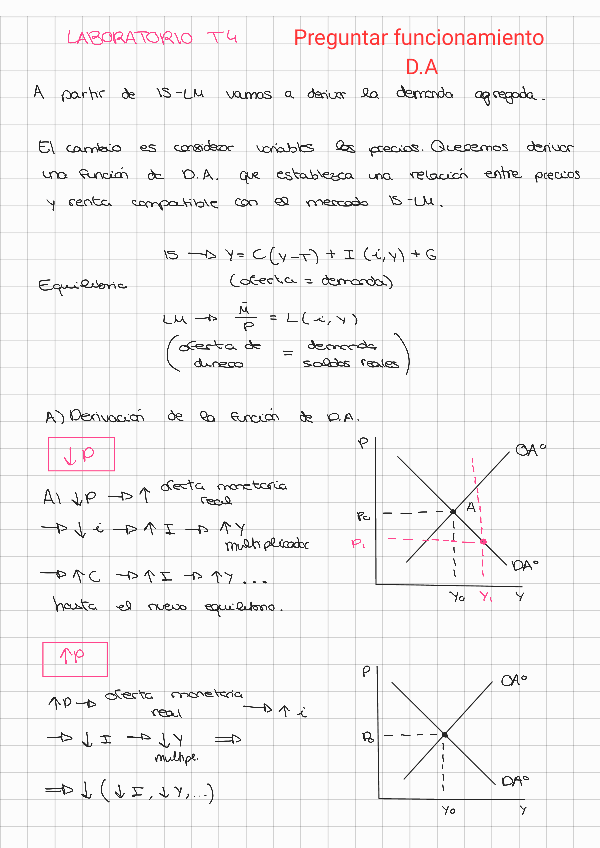 LABORATORIO T4
Preguntar funcionamiento
D.A
A partir de IS-LM vamos a derivar la demanda agregada.
El cambio es considerar variables los precios. Queremos derivar
una función de D.A. que establezca una relación entre precios
y renta compatible con el mercado IS-LM.
IS → Y = C(Y-T) + I (i,Y) + G
Equilibrio (oferta = demanda)
LM → M̄/P = L(i,Y)
(oferta de dinero = demanda saldos reales)
A) Derivación de la función de D.A.
↓P
A) ↓P → ↑ oferta monetaria real
→ ↓i → ↑I → ↑Y
multiplicador
→ ↑C → ↑I → ↑Y ...
hasta el nuevo equilibrio.
P
OA⁰
A
P₀
P₁
DA⁰
Y₀ Y₁ Y
↑P
↑P → oferta monetaria real → ↑i
→ ↓I → ↓Y ⇒
multipl.
⇒ ↓ (↓I, ↓Y, ...)
P
OA⁰
P₀
DA⁰
Y₀ Y